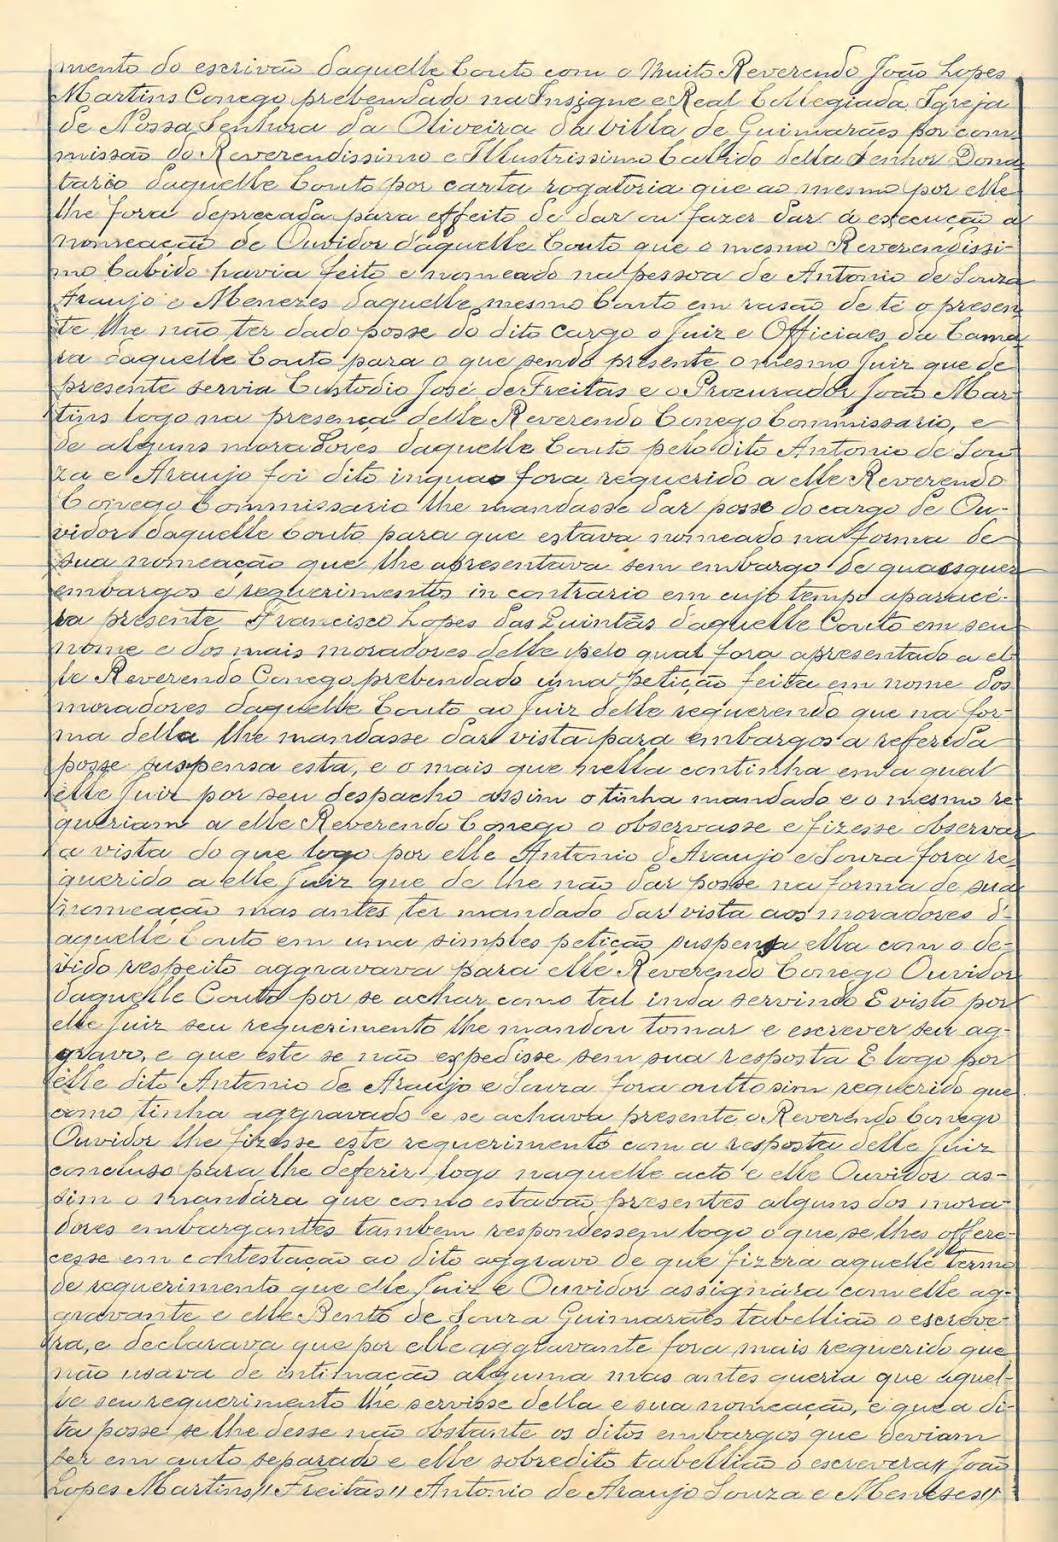 mento do escrivão daquelle Couto com o Muito Reverendo João Lopes
Martins Conego prebendado na Insigne e Real Collegiada Igreja
de Nossa Senhora da Oliveira da villa de Guimarães por com-
missão do Reverendissimo e Illustrissimo Cabido della Senhor Dona
tario daquelle Couto por carta rogatoria que ao mesmo por elle
lhe fora deprecada para effeito de dar ou fazer dar á execução a
nomeação de Ouvidor daquelle Couto que o mesmo Reverendissi-
mo Cabido havia feito e nomeado na pessoa de Antonio de Souza
Araujo e Menezes daquelle mesmo Couto em rasão de té o presen
te lhe não ter dado posse do dito cargo o Juiz e Officiaes da Cama
ra daquelle Couto para o que sendo presente o mesmo Juiz que de
presente servia Custodio José de Freitas e o Procurador João Mar-
tins logo na presença delle Reverendo Conego Commissario, e
de alguns moradores daquelle Couto pelo dito Antonio de Sou
za e Araujo foi dito fora requerido a elle Reverendo
Conego Commissario lhe mandasse dar posse do cargo de Ou-
vidor daquelle Couto para que estava nomeado na forma de
sua nomeação que lhe apresentava sem embargo de quaesquer
embargos e requerimentos in contrario em cujo tempo aparacê-
ra presente Francisco Lopes das Quintãs daquelle Couto em seu
nome e dos mais moradores delle pelo qual fora apresentado a el-
le Reverendo Conego prebendado uma petição feita em nome dos
moradores daquelle Couto ao Juiz delle requerendo que na for-
ma della lhe mandasse dar vista para embargos a referida
posse suspensa esta, e o mais que nella continha em a qual
elle Juiz por seu despacho assim o tinha mandado e o mesmo re-
queriam a elle Reverendo Conego o observasse e fizesse observar
a vista do que logo por elle Antonio d'Araujo e Souza fora re-
querido a elle Juiz que de lhe não dar posse na forma de sua
nomeação mas antes ter mandado dar vista aos moradores d'-
aquelle Couto em uma simples petição suspensa ella com o de-
vido respeito aggravava para elle Reverendo Conego Ouvidor
daquelle Couto por se achar como tal inda servindo E visto por
elle Juiz seu requerimento lhe mandou tomar e escrever seu ag-
gravo, e que este se não expedisse sem sua resposta E logo por
elle dito Antonio de Araujo e Souza fora outtosim requerido que
como tinha aggravado e se achava presente o Reverendo Conego
Ouvidor lhe fizesse este requerimento com a resposta delle Juiz
concluso para lhe deferir logo naquelle acto e elle Ouvidor as-
sim o mandára que como estavão presentes alguns dos mora-
dores embargantes tambem respondessem logo o que se lhes offere-
cesse em contestação ao dito aggravo de que fizera aquelle termo
de requerimento que elle Juiz e Ouvidor assignára com elle ag-
gravante e elle Bento de Souza Guimarães tabellião o escreve-
ra, e declarava que por elle aggravante fora mais requerido que
não usava de intimação alguma mas antes queria que aquel-
le seu requerimento lhe servisse della e sua nomeação, e que a di-
ta posse se lhe desse não obstante os ditos embargos que deviam
ser em auto separado e elle sobredito tabellião o escrevera // João
Lopes Martins // Freitas // Antonio de Araujo Souza e Meneses //